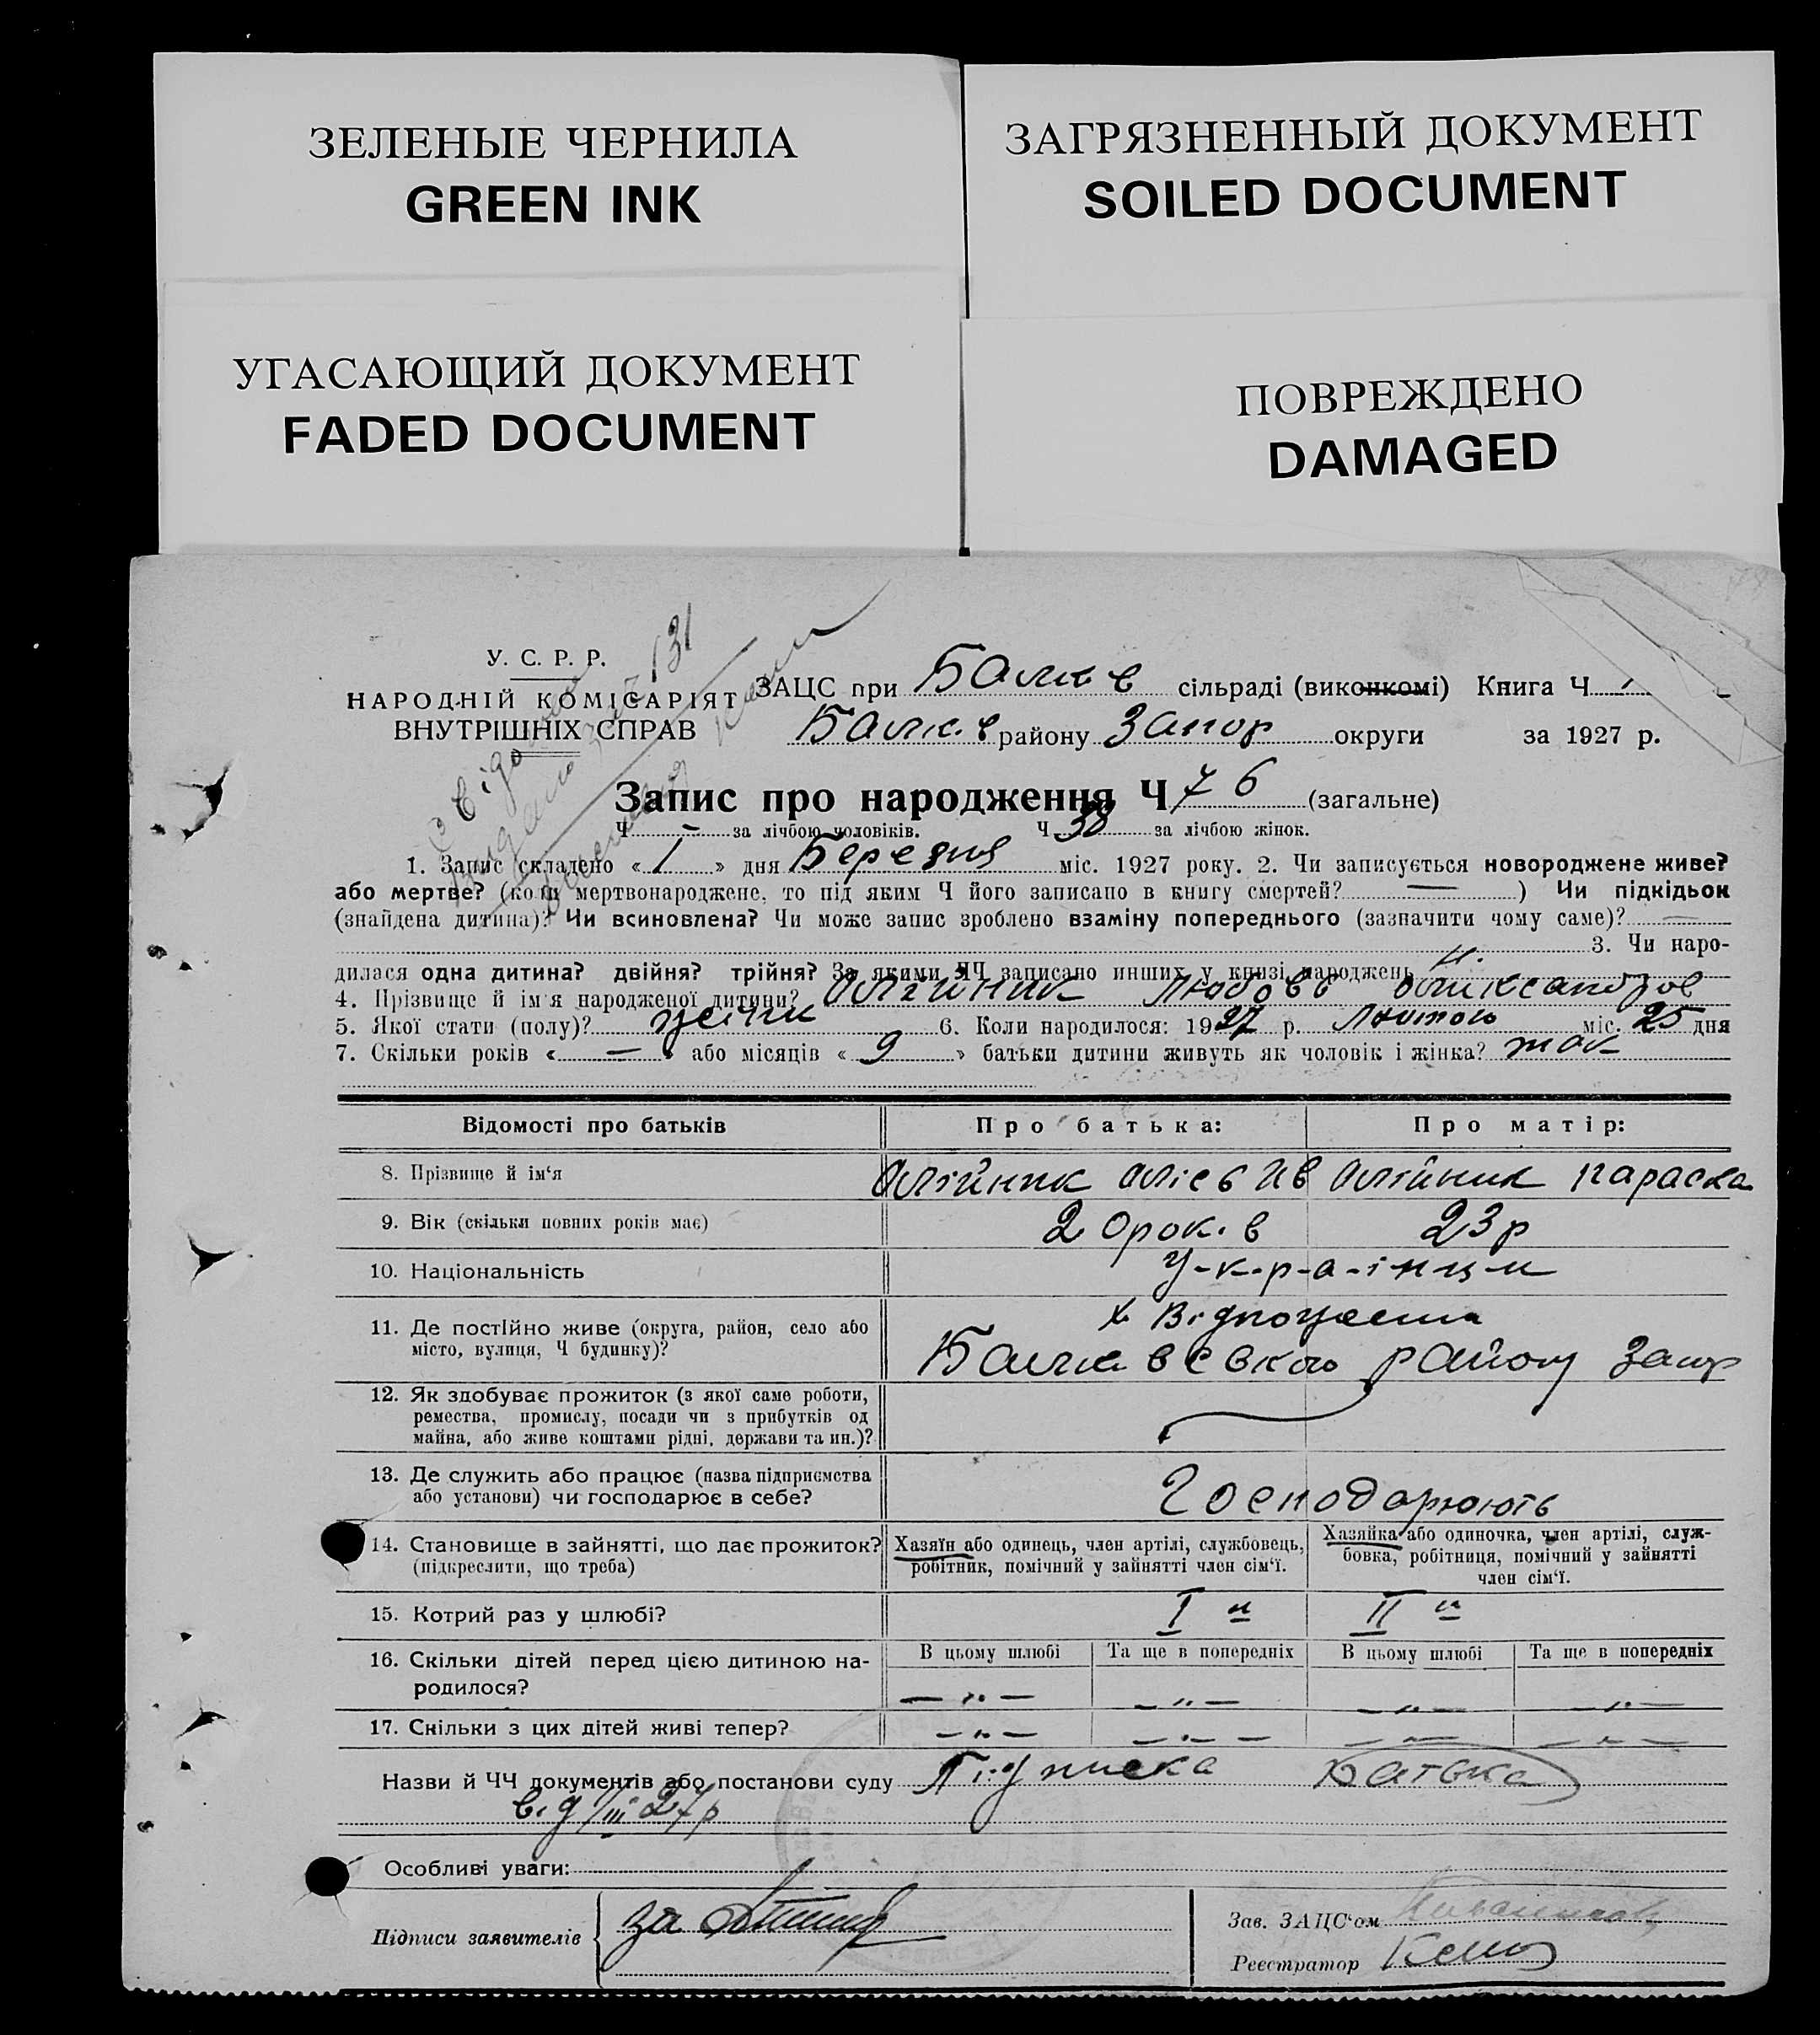 ЗЕЛЕНЫЕ ЧЕРНИЛА
GREEN INK
ЗАГРЯЗНЕННЫЙ ДОКУМЕНТ
SOILED DOCUMENT
УГАСАЮЩИЙ ДОКУМЕНТ
FADED DOCUMENT
ПОВРЕЖДЕНО
DAMAGED
У. С. Р. Р.
НАРОДНІЙ КОМІСАРІЯТ
ВНУТРІШНІХ СПРАВ
ЗАЦС при Балків сільраді (виконкомі) Книга Ч
Балків району Запор округи за 1927 р.
Запис про народження Ч 76 (загальне)
Ч - за лічбою чоловіків. Ч 38 за лічбою жінок.
1. Запис складено « 1 » дня Березня міс. 1927 року. 2. Чи записується новороджене живе?
або мертве? (коли мертвонароджене, то під яким Ч його записано в книгу смертей? — ) Чи підкідьок
(знайдена дитина)? Чи всиновлена? Чи може запис зроблено взаміну попереднього (зазначити чому саме)? —
3. Чи наро-
дилася одна дитина? двійня? трійня? За якими ЧЧ записано инших у книзі народжень
4. Прізвище й ім'я народженої дитини? Олійник Любовь Олександров
5. Якої стати (полу)? жіно 6. Коли народилося: 1927 р. Лютого міс. 25 дня
7. Скільки років « — » або місяців « 9 » батьки дитини живуть як чоловік і жінка? так
Відомості про батьків
Про батька:
Про матір:
8. Прізвище й ім'я
Олійник Олісь Ив
Олійник Параска
9. Вік (скільки повних років має)
20 рок.в
23 р
10. Національність
У-к-р-а-ї-н-ц-и
11. Де постійно живе (округа, район, село або
місто, вулиця, Ч будинку)?
Балківського району Запор
12. Як здобуває прожиток (з якої саме роботи,
ремества, промислу, посади чи з прибутків од
майна, або живе коштами рідні, держави та ин.)?
13. Де служить або працює (назва підприємства
або установи) чи господарює в себе?
Господарюють
14. Становище в зайнятті, що дає прожиток?
(підкреслити, що треба)
Хазяїн або одинець, член артілі, службовець,
робітник, помічний у зайнятті член сім'ї.
Хазяйка або одиночка, член артілі, служ-
бовка, робітниця, помічний у зайнятті
член сім'ї.
15. Котрий раз у шлюбі?
І й
ІІ й
16. Скільки дітей перед цією дитиною на-
родилося?
В цьому шлюбі
Та ще в попередніх
В цьому шлюбі
Та ще в попередніх
— „ —
— „ —
— „ —
— „ —
17. Скільки з цих дітей живі тепер?
— „ —
— „ —
— „ —
— „ —
Назви й ЧЧ документів або постанови суду Підписка батька
від 1/III 27р
Особливі уваги:
Підписи заявителів
за
Зав. ЗАЦС'ом
Реєстратор